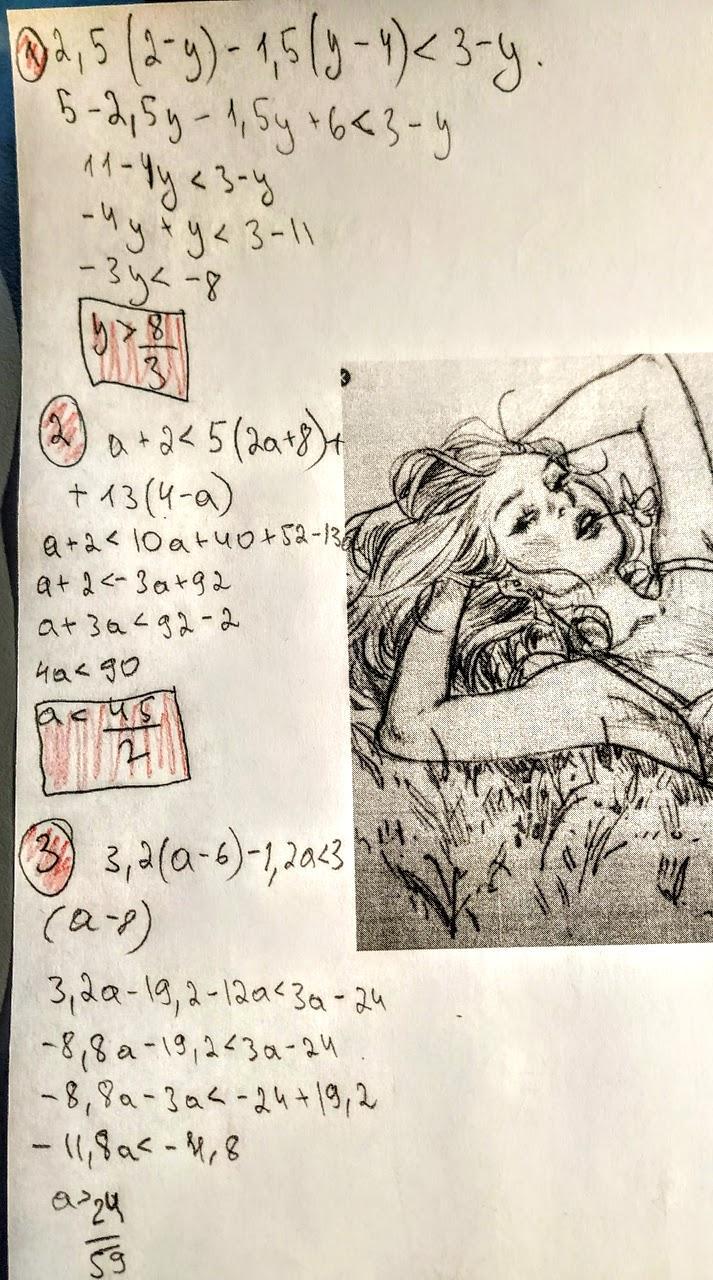 1 2,5 (2-y) - 1,5 (y-4) < 3-y.
5 - 2,5y - 1,5y + 6 < 3 - y
11 - 4y < 3 - y
-4y + y < 3 - 11
-3y < -8
y > 8/3
2 a + 2 < 5 (2a+8) +
+ 13 (4-a)
a + 2 < 10a + 40 + 52 - 13a
a + 2 < -3a + 92
a + 3a < 92 - 2
4a < 90
a < 45/2
3 3,2 (a-6) - 1,2a < 3
(a-8)
3,2a - 19,2 - 12a < 3a - 24
-8,8a - 19,2 < 3a - 24
-8,8a - 3a < -24 + 19,2
-11,8a < -4,8
a > 24/59